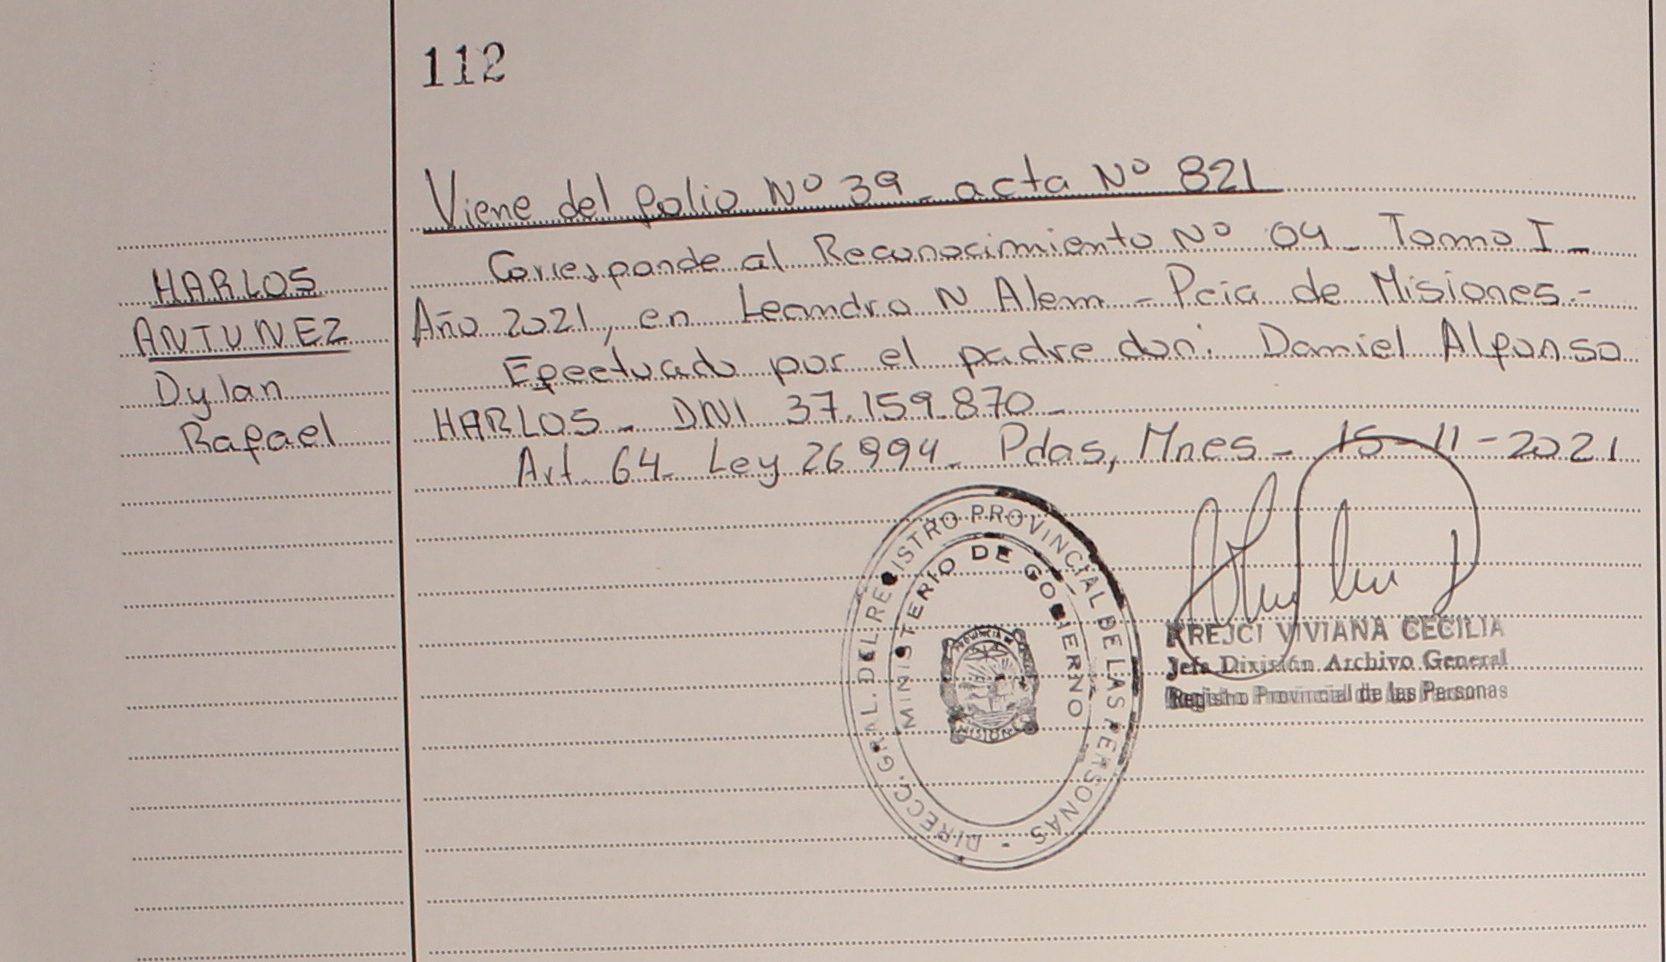 112
Viene del folio Nº 39_ acta Nº 821
HARLOS
ANTUNEZ
Dylan
Rafael
Corresponde al Reconocimiento Nº 04_ Tomo I_
Año 2021, en Leandro N Alem - Pcia de Misiones.-
Efectuado por el padre don: Daniel Alfonso
HARLOS_ DNI 37.159.870_
Art. 64_ Ley 26994_ Pdas, Mnes_ 15-11-2021
DIRECC. GRAL. DEL REGISTRO PROVINCIAL DE LAS PERSONAS -
MINISTERIO DE GOBIERNO
PROVINCIA DE
MISIONES
KREJCI VIVIANA CECILIA
Jefa División Archivo General
Registro Provincial de las Personas